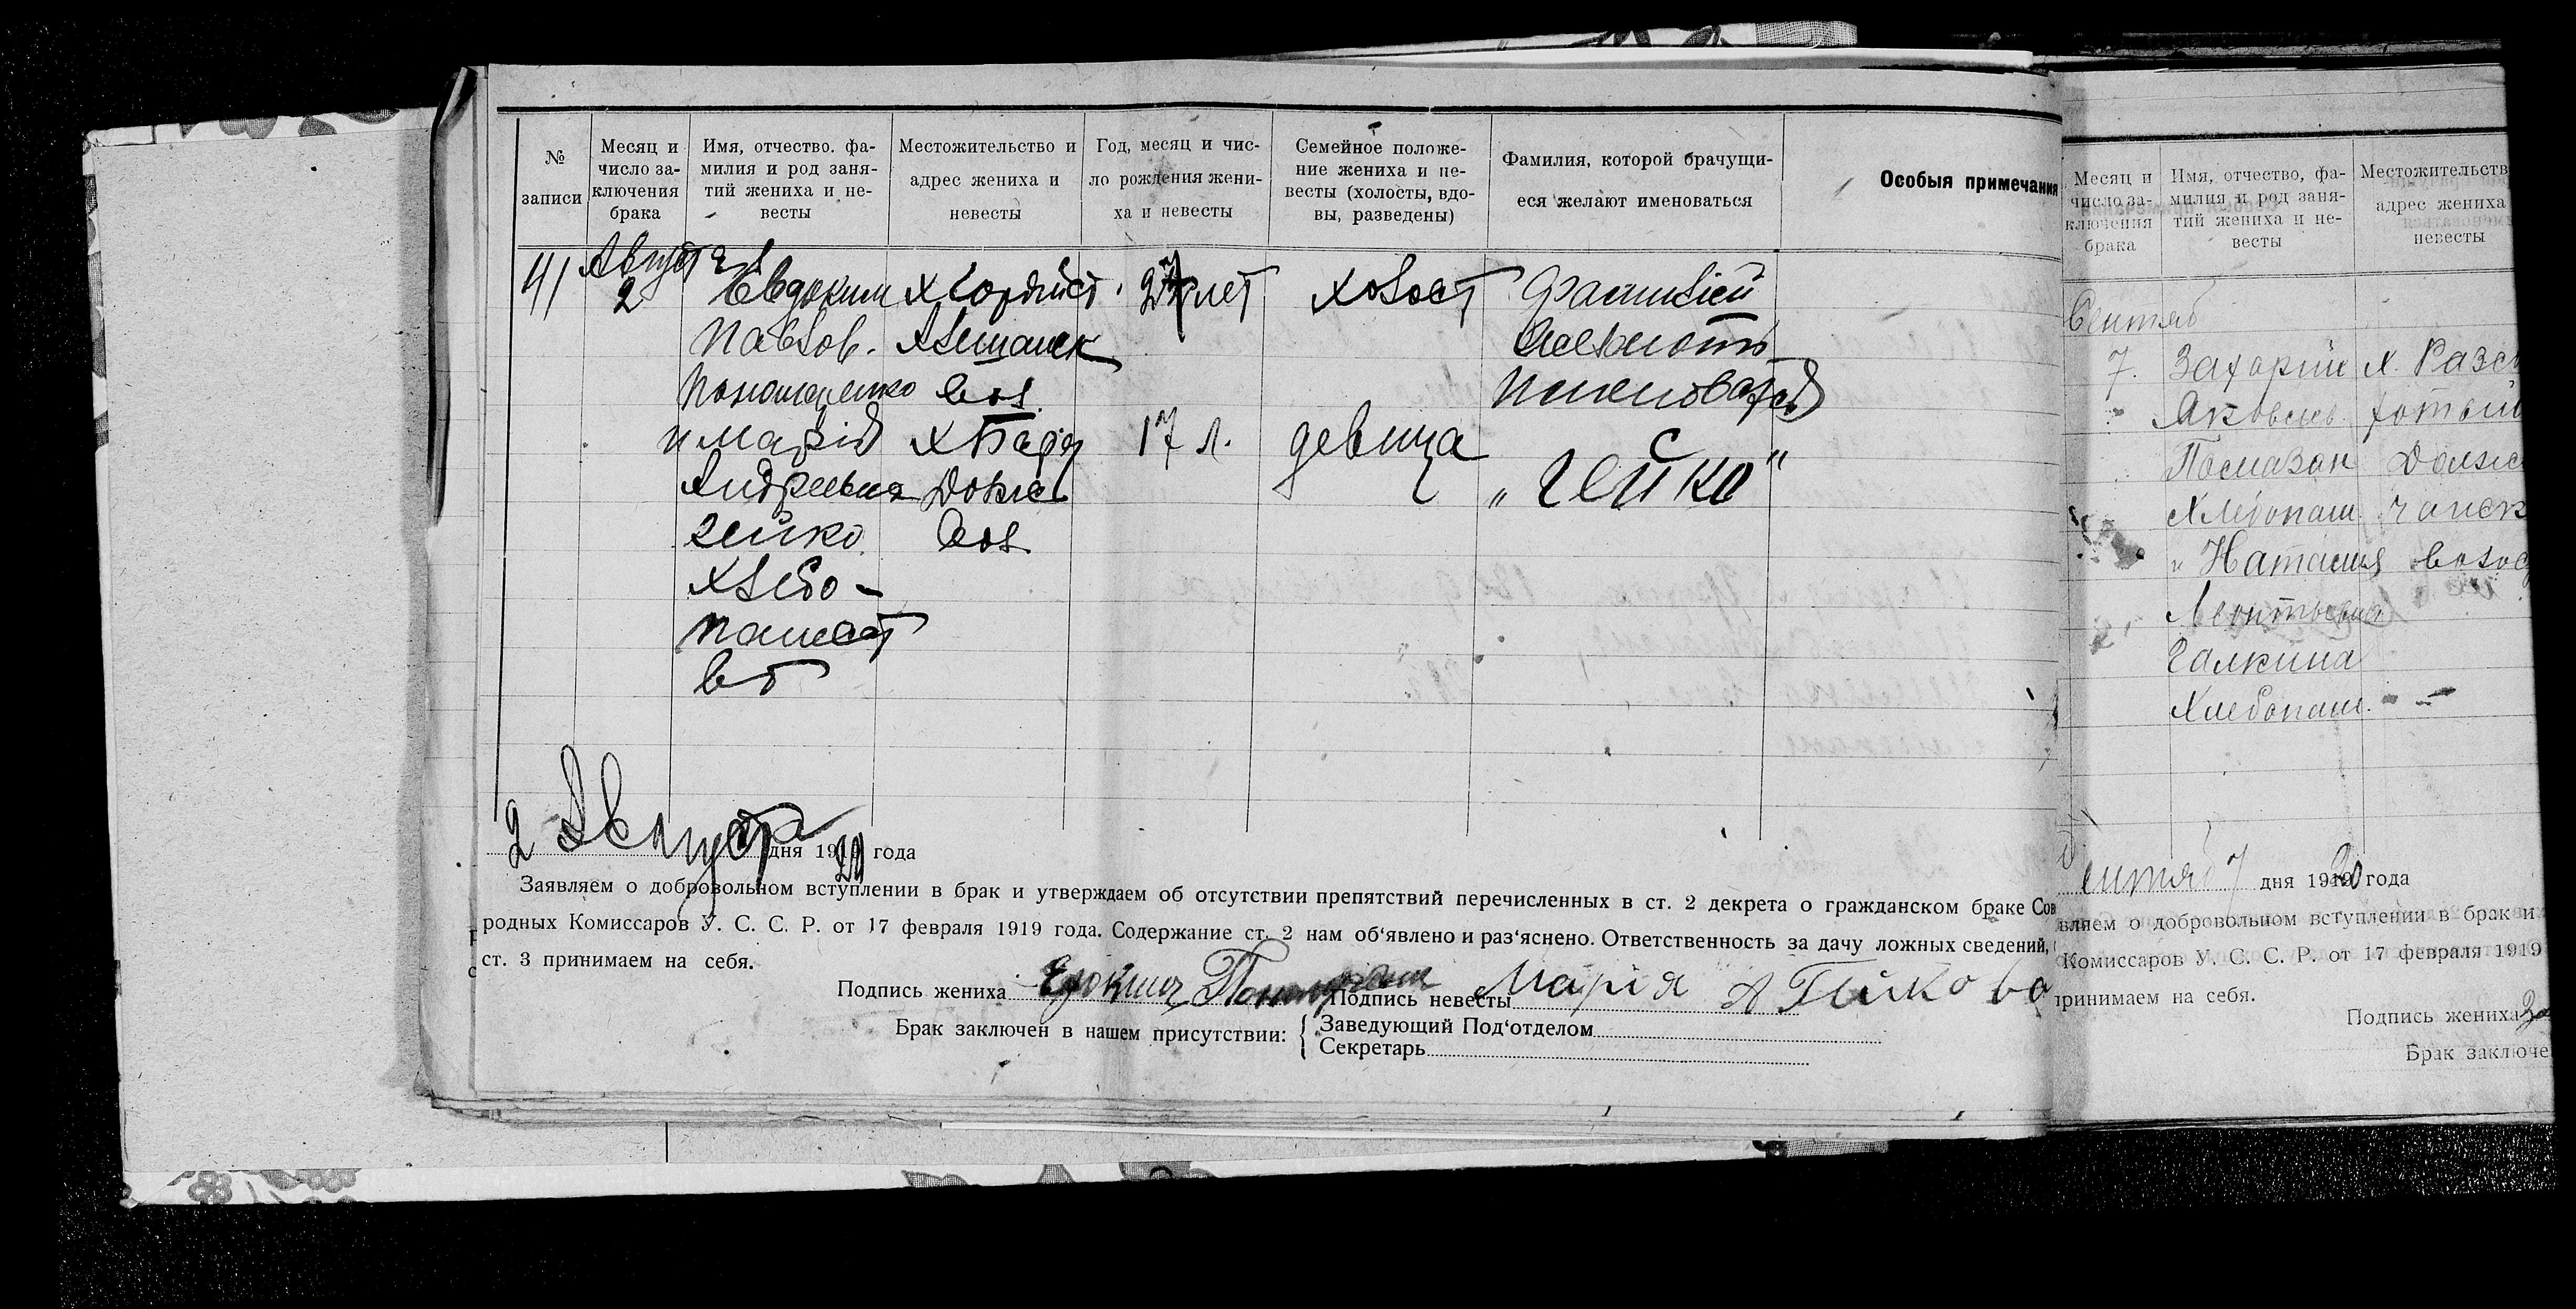 № записи
Месяц и число заключения брака
Имя, отчество. фамилия и род занятий жениха и невесты
Местожительство и адрес жениха и невесты
Год, месяц и число рождения жениха и невесты
Семейное положение жениха и невесты (холосты, вдовы, разведены)
Фамилия, которой брачущиеся желают именоваться
Особыя примечания
Август
2
Евдоким
Павлов.
Пономаренко
и Марія
Андреевна
Гейко
Хлебо-
пашест
во
Х
Вол.
Х
Вол.
27 лет
17 л.
Холост
девица
Фамилией
Желают
именоватся
„Гейко“
2 Август дня 1919 20 года
Заявляем о добровольном вступлении в брак и утверждаем об отсутствии препятствий перечисленных в ст. 2 декрета о гражданском браке Сов
родных Комиссаров У. С. С. Р. от 17 февраля 1919 года. Содержание ст. 2 нам об‘явлено и раз‘яснено. Ответственность за дачу ложных сведений,
ст. 3 принимаем на себя.
Подпись жениха
Подпись невесты Марія А Гейкова
Брак заключен в нашем присутствии:
Заведующий Под‘отделом
Секретарь
Месяц и число заключения брака
Имя, отчество, фамилия и род занятий жениха и невесты
Местожительств
адрес жениха
невесты
Сентяб
7.
Захарий
Яковлев.
Помазан
Хлебопаш
и Наталия
Леонтьевна
Галкина
Хлебопаш.
Х.
Сентяб 7 дня 1919 20 года
вляем о добровольном вступлении в брак и
Комиссаров У. С. С. Р. от 17 февраля 1919
принимаем на себя.
Подпись жениха
Брак заключе